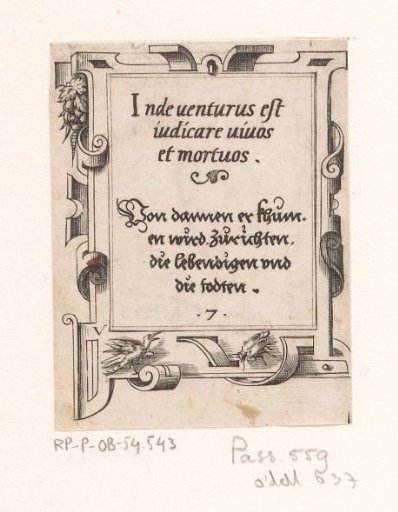 Inde uenturus est
iudicare uiuos
et mortuos.
Von dannen er khum.
en wird. zuͦrichten.
die lebendigen vnd
die todten.
·7·
V
RP-P-OB-54543
Pass. 559
o'dell 637